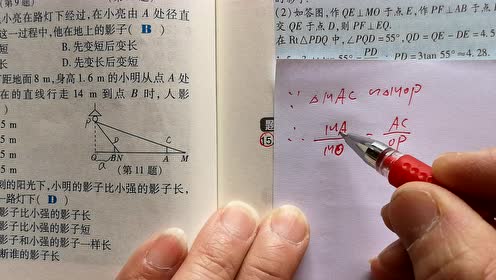 小亮在路灯下经过,在小亮由 A 处径直
这一过程中,他在地上的影子( B )
B. 先变短后变长
D. 先变长后变短
距地面 8 m,身高 1.6 m 的小明从点 A 处
在的直线行走 14 m 到点 B 时,人影
5 m
5 m
5 m
5 m
P
D
C
O
B
N
A
M
a
(第 11 题)
的阳光下,小明的影子比小强的影子长
一路灯下( D )
影子比小强的影子长
影子比小强的影子短
影子和小强的影子一样长
断谁的影子长
题
15
(2) 如答图,作 QE⊥MO 于点 E,作 PF⊥AB 于点
交 QE 于点 D,则 PF=EQ.
在 Rt△PDQ 中,∠PQD=55°,QD=QE-DE=4.5
55°=PD
PD=3tan 55°≈4.28.
∵ △MAC ∽△MOP
∴ MA/MO = AC/OP